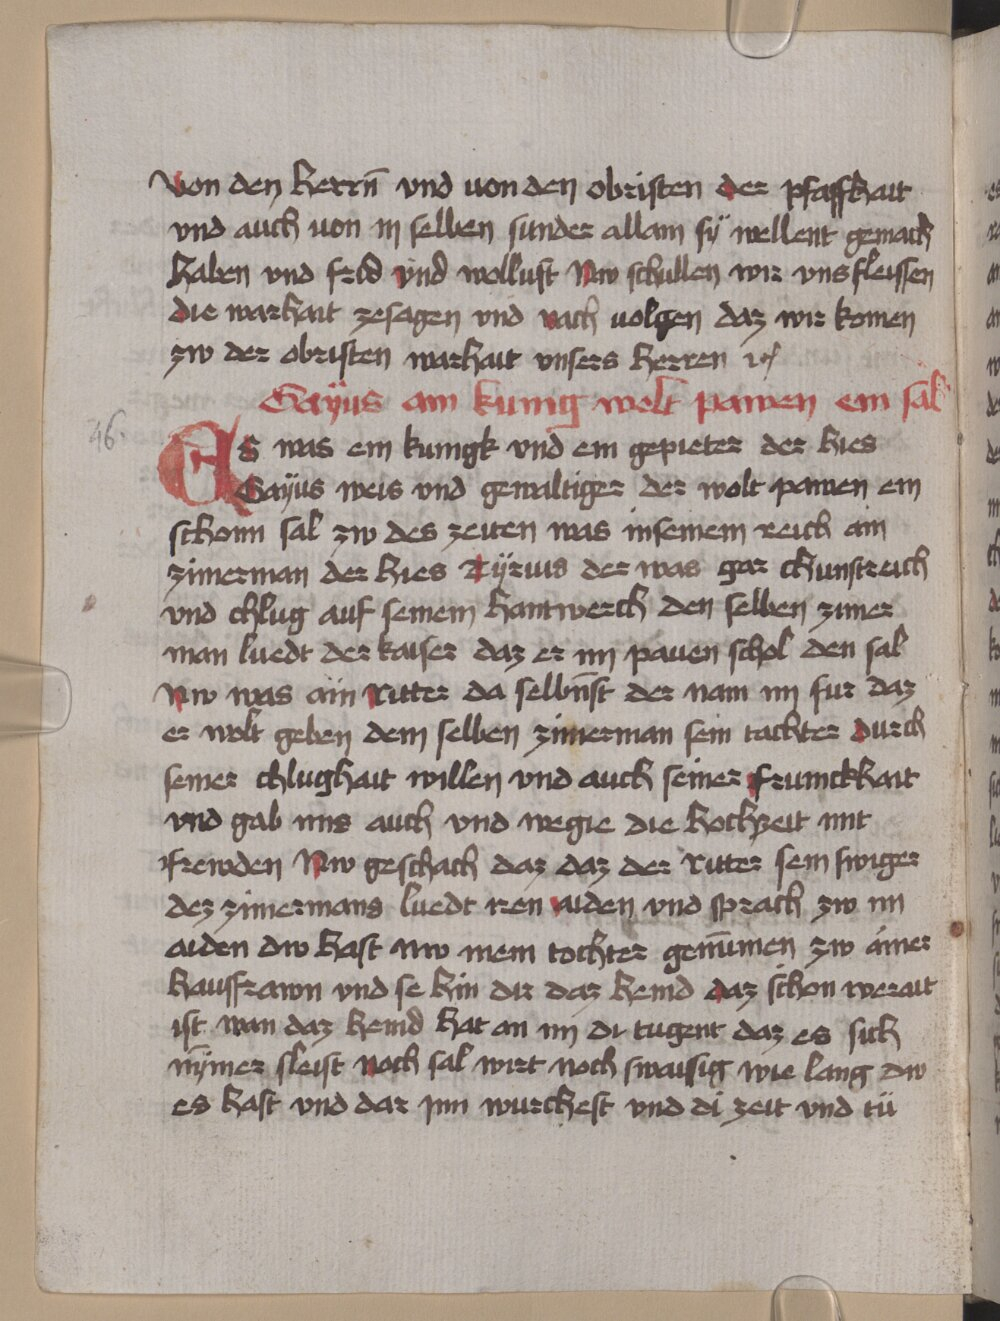 von den herrn̄ vnd von den obristen der pfaffhait
vnd auch von in selben sunder allain sÿ wellent gemach
haben vnd frid vnd wollust Nw schullen wir vns fleissen
die warhait zesagen vnd nach uolgen daz wir komen
zw der obristen warhait vnsers herren
Gayus ain kunig wolt pawen ein sal
46
Es was ein kunigk vnd ein gepieter der hies
Gayus weis vnd gewaltiger der wolt pawen ein
schonn sal zw des zeiten was in seinem reich ain
zimerman der hies Tÿrus der was gar chunstreich
vnd chlug auf seinem hantwerch den selben zimer
man luedt der kaiser daz er im pauen schol den sal
Nw was ain Ritter da selbn̄st der nam im fur daz
er wolt geben dem selben zimerman sein tachter durch
seiner chlughait willen vnd auch seiner frumckhait
vnd gab ims auch vnd wegie die hochzeit mit
frewden Nw geschach daz daz der ritter sein swiger
dez zimermans luedt iren aiden vnd sprach zw im
aiden dw hast nw mein tochter genūmen zw ainer
hausfrawn vnd se hin dir daz hemd daz schon werait
ist wan daz hemd hat an im di tugent daz es sich
nȳmer sleist noch sal wirt noch swaisig wie lang dw
es hast vnd dar jnn wurchest vnd di zeit vnd tü